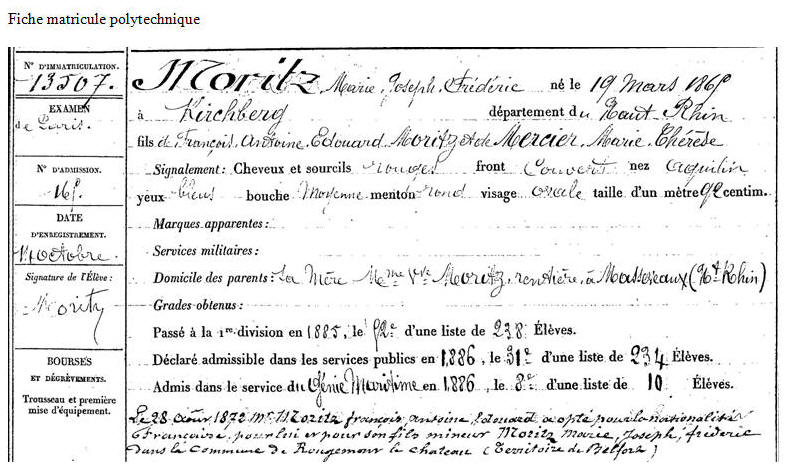 Fiche matricule polytechnique
N° D'IMMATRICULATION.
13507.
EXAMEN
de Paris.
N° D'ADMISSION.
DATE
D'ENREGISTREMENT.
14 octobre.
Signature de l'Élève:
Moritz
BOURSES
ET DÉGRÈVEMENTS.
Trousseau et première
mise d'équipement.
Moritz Marie, Joseph, Frédéric né le 19 Mars 1865
à Kirchberg département du Haut Rhin
fils de François, Antoine, Edouard Moritz et de Mercier, Marie Thérèse
Signalement: Cheveux et sourcils rouges front Couvert nez aquilin
yeux bleus bouche Moyenne menton rond visage ovale taille d'un mètre 92 centim.
Marques apparentes:
Services militaires:
Domicile des parents: La Mère Mme Vve Moritz, rentière, à Massevaux (Ht Rhin)
Grades obtenus:
Passé à la 1re division en 1885, le 92e d'une liste de 238 Élèves.
Déclaré admissible dans les services publics en 1886, le 31e d'une liste de 234 Élèves.
Admis dans le service du Génie Maritime en 1886, le 8e d'une liste de 10 Élèves.
Le 28 août 1872 Mr Moritz françois, antoine, Edouard a opté pour la nationalité
Française, pour lui et pour son fils mineur Moritz Marie, Joseph, frédéric
dans la Commune de Rougemont le chateau (Territoire de Belfort)